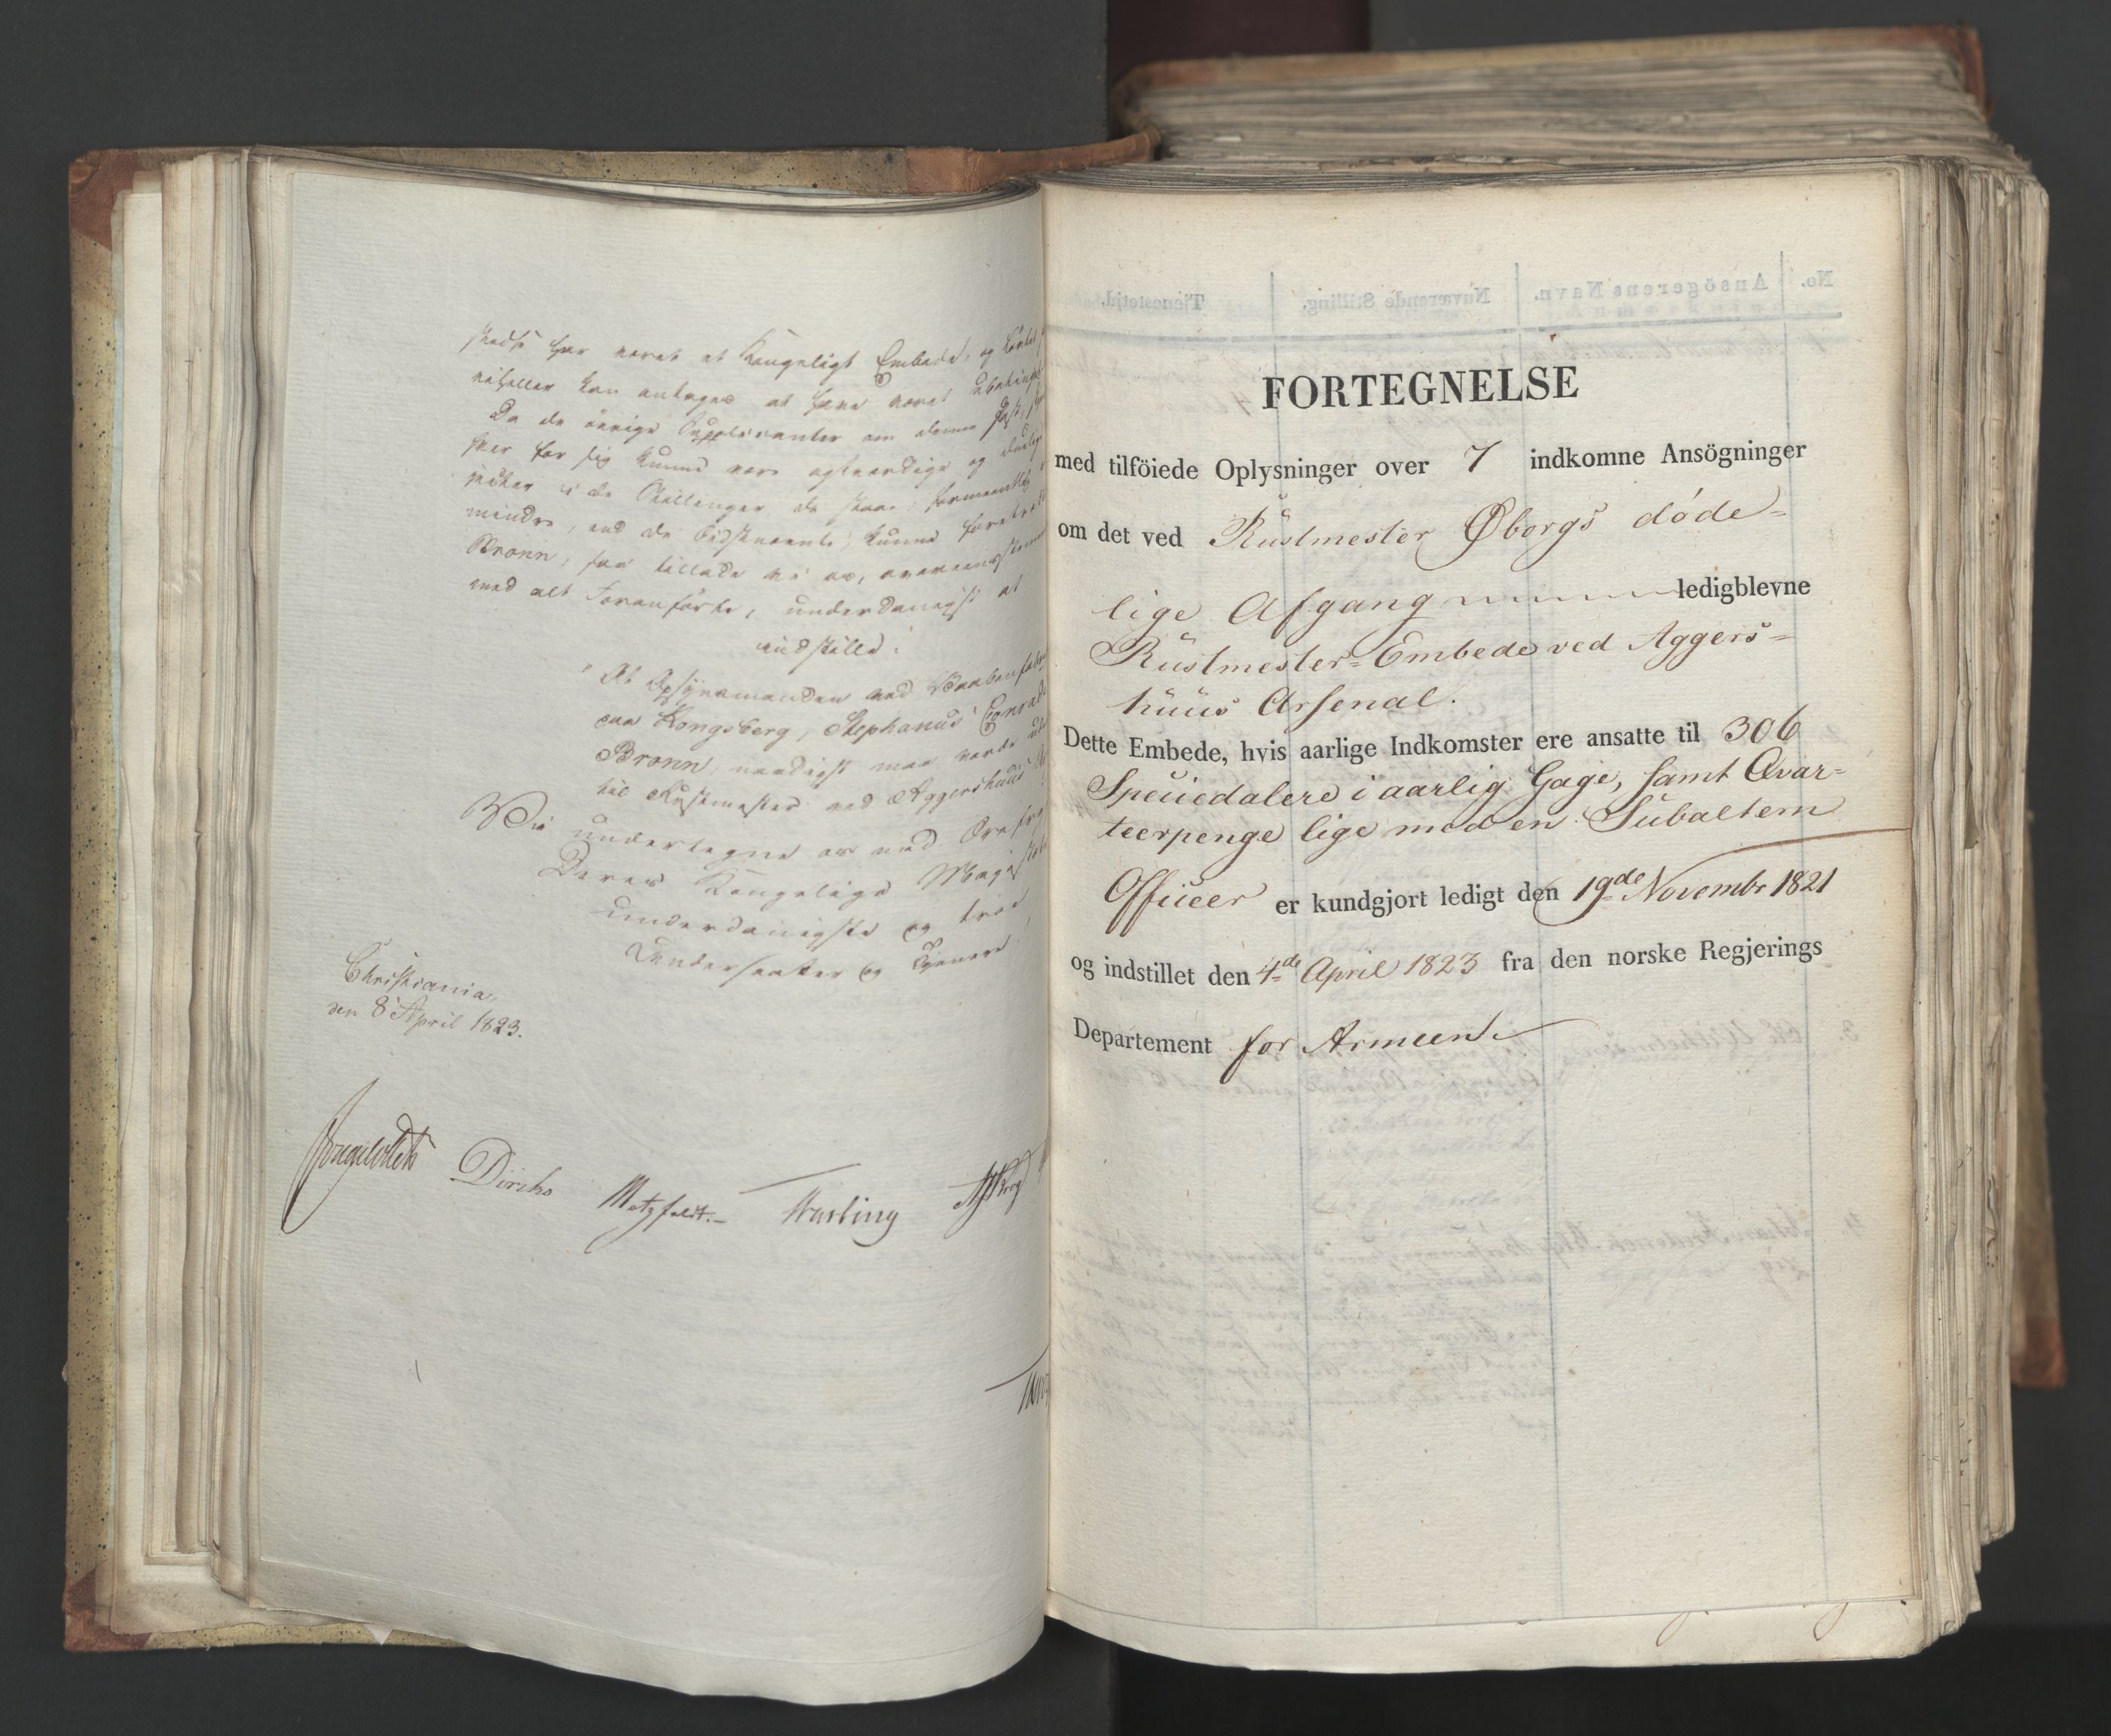 stedse har været et Kongeligt Embede, og
heller kan antages at have været
Da de øvrige Supplicanter om denne Post,
hver for sig kunne være agtværdige og
i de Stillinger de staae, formeentlig
mindre, end de bidstnævnte, kunne
Bronn, saa tillade vi os, overeensstem
med alt Foranførte, underdanigst at
indstille:
"At Opsynsmanden ved Vaabenfabri
paa Kongsberg, Stephanus Conrad
Bronn, naadigst maa vorde
til Rustmester ved Aggershuus
Vi undertegne os med
Deres Kongelige Majest
underdanigste og troe
Undersaatter og Tjenere
Christiania,
den 8 April 1823.
Diriks
Motzfeldt.
Krog
FORTEGNELSE
med tilföiede Oplysninger over 7 indkomne Ansögninger
om det ved Rüstmester Øborgs døde-
lige Afgang ledigblevne
Rüstmester-Embede ved Aggers-
hüüs Arsenal.
Dette Embede, hvis aarlige Indkomster ere ansatte til 306
Speciedalere i aarlig Gage, samt Qvar-
teerpenge lige med en Subaltern
Officeer er kundgjort ledigt den 19de Novembr 1821
og indstillet den 4de April 1823 fra den norske Regjerings
Departement for Armeen.